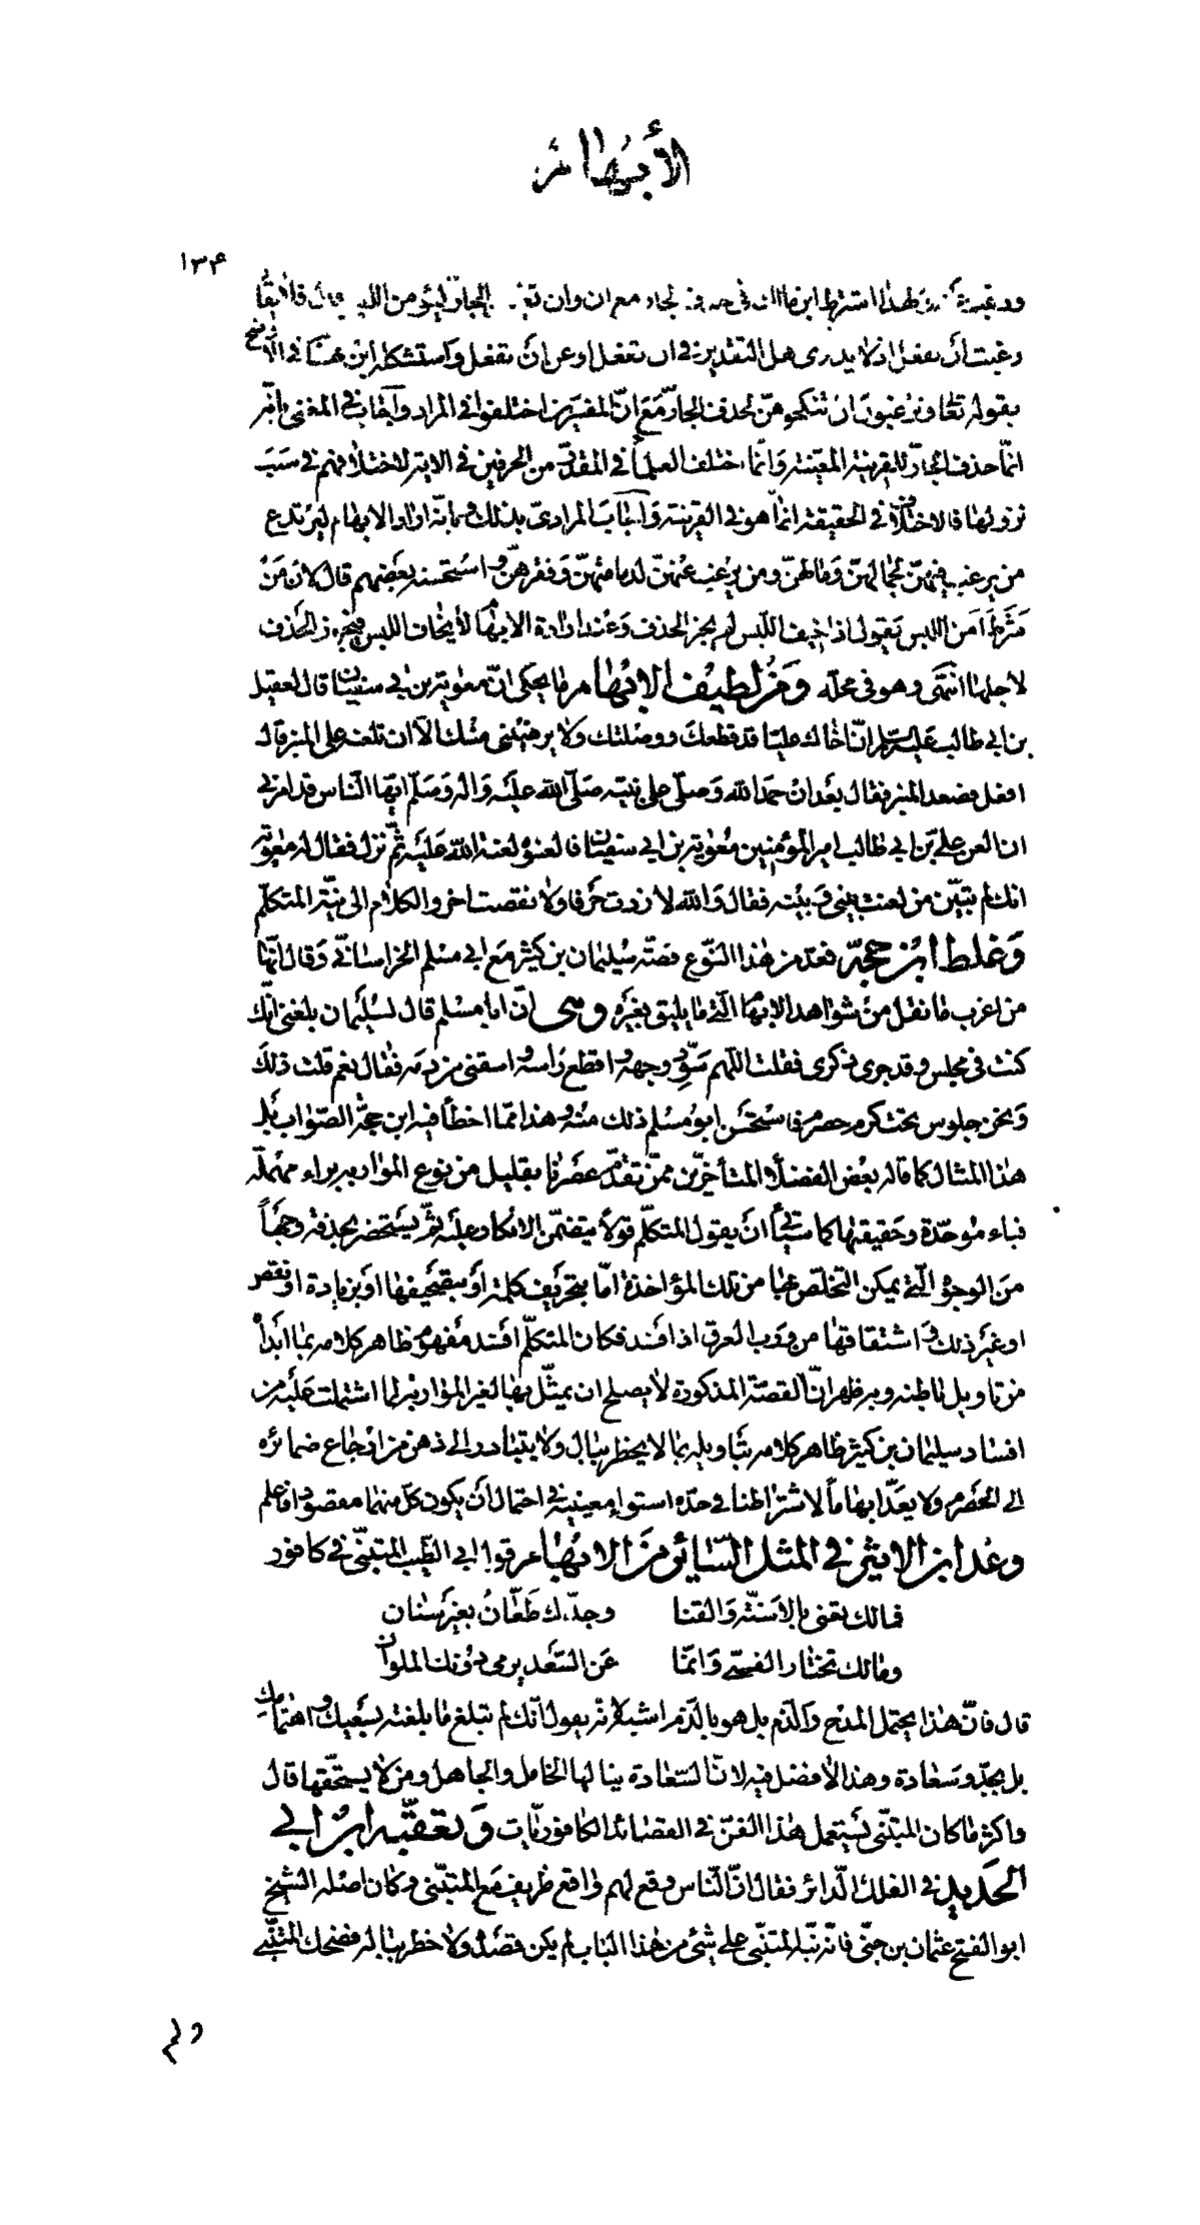 الأبهام
١٣۴
ولهذا اشترط ابن مالك في حذف الجار مع ان وان تعين الجار ليؤمن اللبس قال فلا يقال
رغبت أن تفعل اذ لا يدرى هل التقدير في ان تفعل او عن أن تفعل واستشكله ابن هشام في الاوضح
بقوله تعالى وترغبون ان تنكحوهن بحذف الجار مع ان المفسرين اختلفوا في المراد وأجاب في المغني بانه
انما حذف الجار للقرينة المعينة وانما اختلف العلماء في المقدر من الحرفين في الاية لاختلافهم في سبب
نزولها فالاختلاف في الحقيقة انما هو في القرينة وأجاب المرادي بذلك وبانه اراد الابهام ليرتدع
من يرغب فيهن لجمالهن ومالهن ومن يرغب عنهن لدمامتهن وفقرهن واستحسنه بعضهم قال لان من
شرط امن اللبس يقول اذا خيف اللبس لم يجز الحذف وعند ارادة الابهام لا يخاف اللبس فيجوز الحذف
لاجلها انتهى وهو في محله ومن لطيف الابهام ما يحكى ان معوية بن ابي سفيان قال لعقيل
بن ابي طالب عليه السلم ان اخاك عليا قد قطعك ووصلتك ولا يرضيني منك الا ان تلعنه على المنبر قال
افعل فصعد المنبر فقال بعد ان حمد الله وصلى على نبيه صلى الله عليه وآله وسلم ايها الناس قد امرني
ان العن علي بن ابي طالب امير المؤمنين معوية بن ابي سفيان فالعنوه لعنة الله عليه ثم نزل فقال له معوية
انك لم تبين من لعنت بيني وبينه فقال والله لا زدت حرفا ولا نقصت اخر والكلام الى نية المتكلم
وغلط ابن حجة فعد من هذا النوع قصة سليمان بن كثير مع ابي مسلم الخراساني وقال انها
من اغرب ما نقل من شواهد الابهام التي ما يليق بغيره وهي ان ابا مسلم قال لسليمان بلغني انك
كنت في مجلس وقد جرى ذكري فقلت اللهم سود وجهه واقطع رأسه واسقني من دمه فقال نعم قلت ذلك
ونحن جلوس تحت كرم حصرم فاستحسن ابو مسلم ذلك منه وهذا مما اخطأ فيه ابن حجة الصواب بل
هذا المثال كما قاله بعض الفضلاء المتأخرين ممن تقدم عصرنا بقليل من نوع المواربة براء مهملة
فباء موحدة وحقيقتها كما سيأتي ان يقول المتكلم قولا يتضمن الانكار عليه ثم يستحضر بحذقه وجها
من الوجوه التي يمكن التخلص بها من تلك المؤاخذة اما بتحريف كلمة أو بتصحيفها او بزيادة او نقص
او غير ذلك واشتقاقها من ورب العرق اذا فسد فكان المتكلم افسد مفهوم ظاهر كلامه بما ابداه
من تاويل باطنه وبه ظهر ان القصة المذكورة لا يصلح ان يمثل بها لغير المواربة لما اشتملت عليه من
افساد سليمان بن كثير ظاهر كلامه بتاويله بما لا يخطر ببال ولا يتبادر الى ذهن من ارجاع ضمائره
الى الحصرم ولا يعد ابهاماً لاشتراطنا في حده استواء معنييه في احتمال أن يكون كل منهما مقصودا فاعلم
وعد ابن الاثير في المثل السائر من الابهام قول ابي الطيب المتنبي في كافور
فمالك تعنى بالاسنة والقنا    وجدك طعانُ بغير سنان
ومالك تختار القسي وانما    عن السعد يرمي دونك الملوان
قال فان هذا يحتمل المدح والذم بل هو بالذم اشبه لانه يقول انك لم تبلغ ما بلغته بسعيك واهتمامك
بل بجد وسعادة وهذا لا فضل فيه لان السعادة ينالها الخامل والجاهل ومن لا يستحقها قال
واكثر ما كان المتنبي يستعمل هذا الفن في القصائد الكافوريات وتعقبه ابن ابي
الحديد في الفلك الدائر فقال ان الناس وقع لهم واقع ظريف مع المتنبي وكان اصله الشيخ
ابو الفتح عثمان بن جني فانه نبه المتنبي على شئ من هذا الباب لم يكن قصده ولا خطر بباله فضحك المتنبي